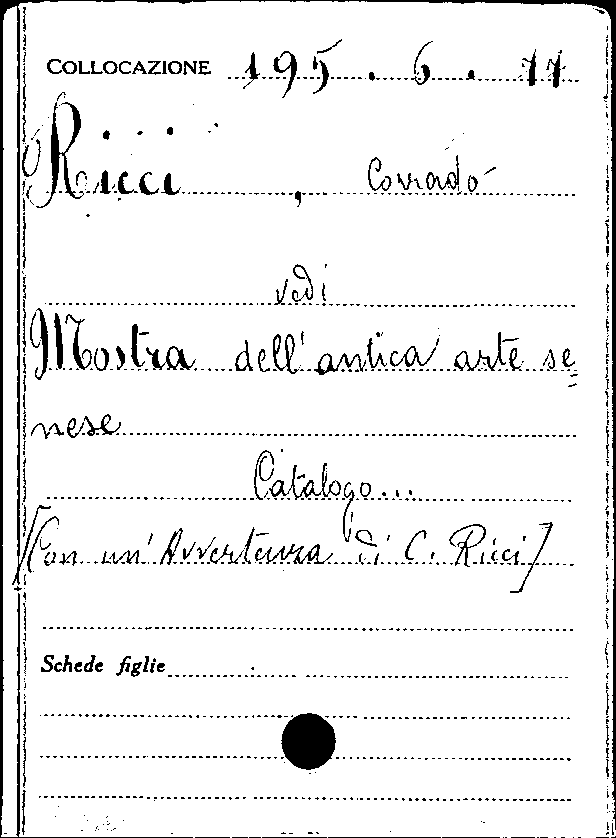 COLLOCAZIONE 195.6.77
Ricci, Corrado
vedi
Mostra dell'antica arte se=
nese
Catalogo...
[Con un'Avvertenza di C. Ricci]
Schede figlie